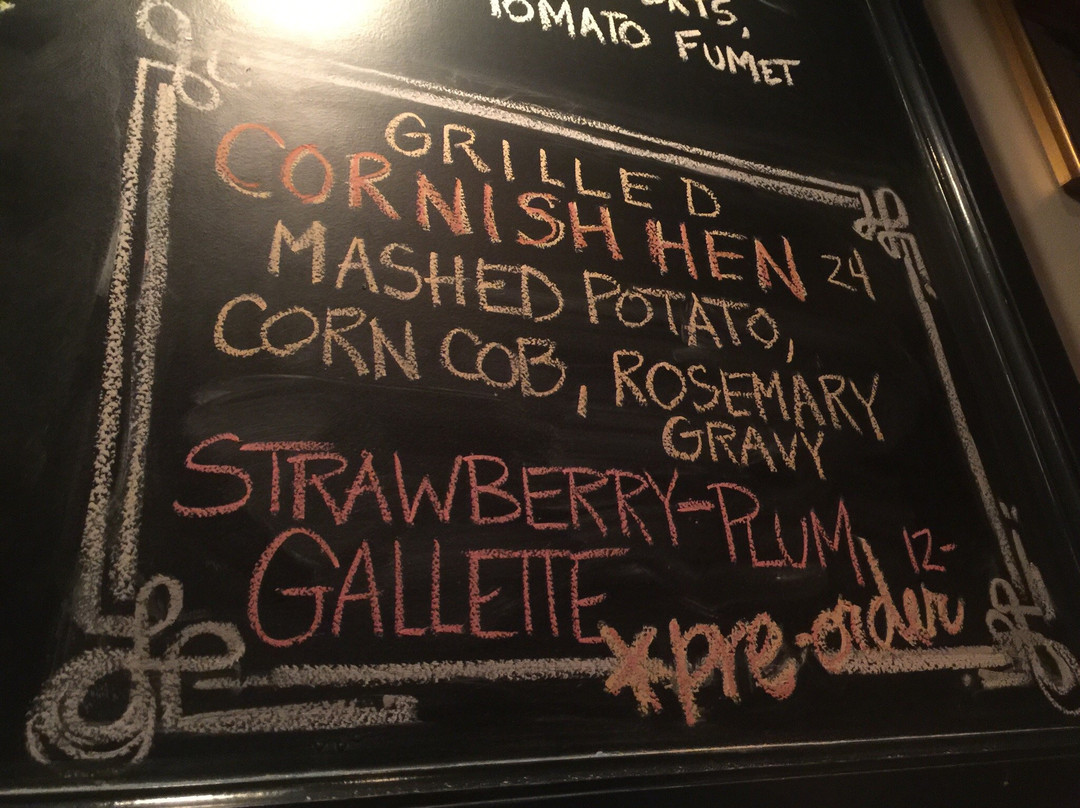 TOMATO FUMET
GRILLED
CORNISH HEN 24
MASHED POTATO,
CORN COB, ROSEMARY
GRAVY
STRAWBERRY-PLUM
GALLETTE 12-
*pre-order